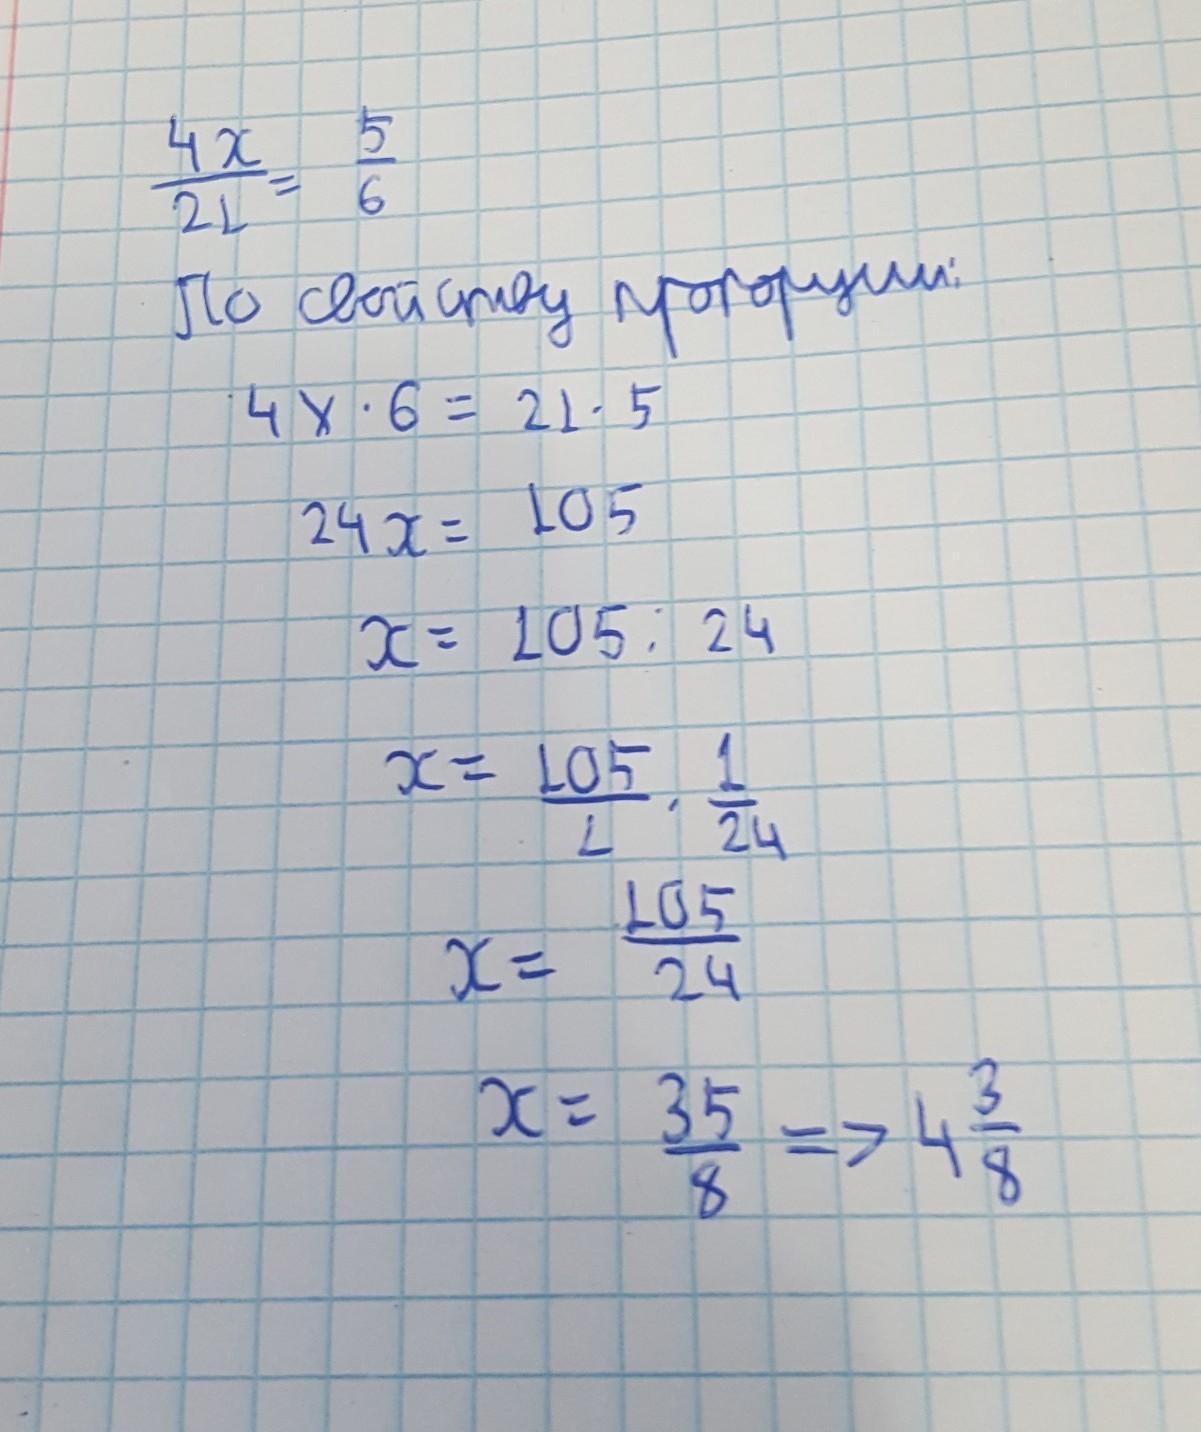 4x/21 = 5/6
По свойству пропорции:
4x · 6 = 21 · 5
24x = 105
x = 105 : 24
x = 105/1 · 1/24
x = 105/24
x = 35/8 => 4 3/8